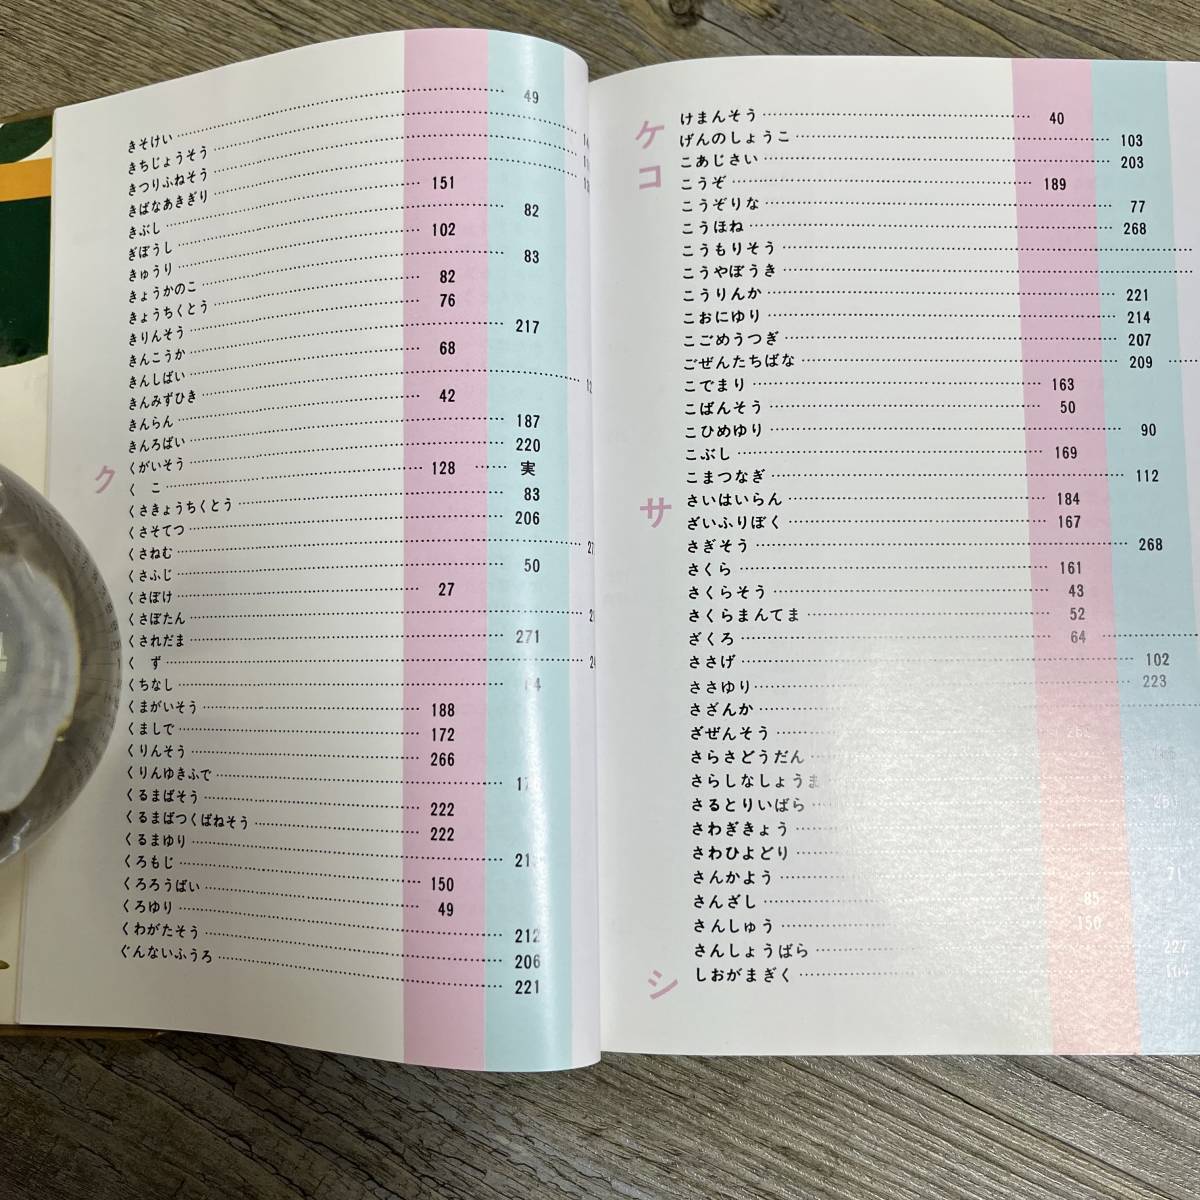 きそけい 49
きちじょうそう
きつりふねそう
きばなあきぎり
きぶし 151
ぎぼうし 82
きゅうり 102
きょうかのこ 83
きょうちくとう 82
きりんそう 76
きんこうか 217
きんしばい 68
きんみずひき
きんらん 42
きんろばい 187
くがいそう 220
ク
く こ 128 実
くさきょうちくとう 83
くさそてつ 206
くさねむ
くさふじ 50
くさぼけ 27
くさぼたん
くされだま 271
く ず
くちなし
くまがいそう 188
くましで 172
くりんそう 266
くりんゆきふで
くるまばそう 222
くるまばつくばねそう 222
くるまゆり
くろもじ 150
くろろうばい 49
くろゆり 212
くわがたそう 206
ぐんないふうろ 221
ケ
けまんそう 40
げんのしょうこ 103
コ
こあじさい 203
こうぞ 189
こうぞりな 77
こうほね 268
こうもりそう
こうやぼうき
こうりんか 221
こおにゆり 214
こごめうつぎ 207
ごぜんたちばな 209
こでまり 163
こばんそう 50
こひめゆり 90
こぶし 169
こまつなぎ 112
サ
さいはいらん 184
ざいふりぼく 167
さぎそう 268
さくら 161
さくらそう 43
さくらまんてま 52
ざくろ 64
ささげ 102
ささゆり 223
さざんか
ざぜんそう
さらさどうだん
さらしなしょうま
さるとりいばら
さわぎきょう
さわひよどり
さんかよう 71
さんざし 85
さんしゅう 150
さんしょうばら 227
シ
しおがまぎく 104